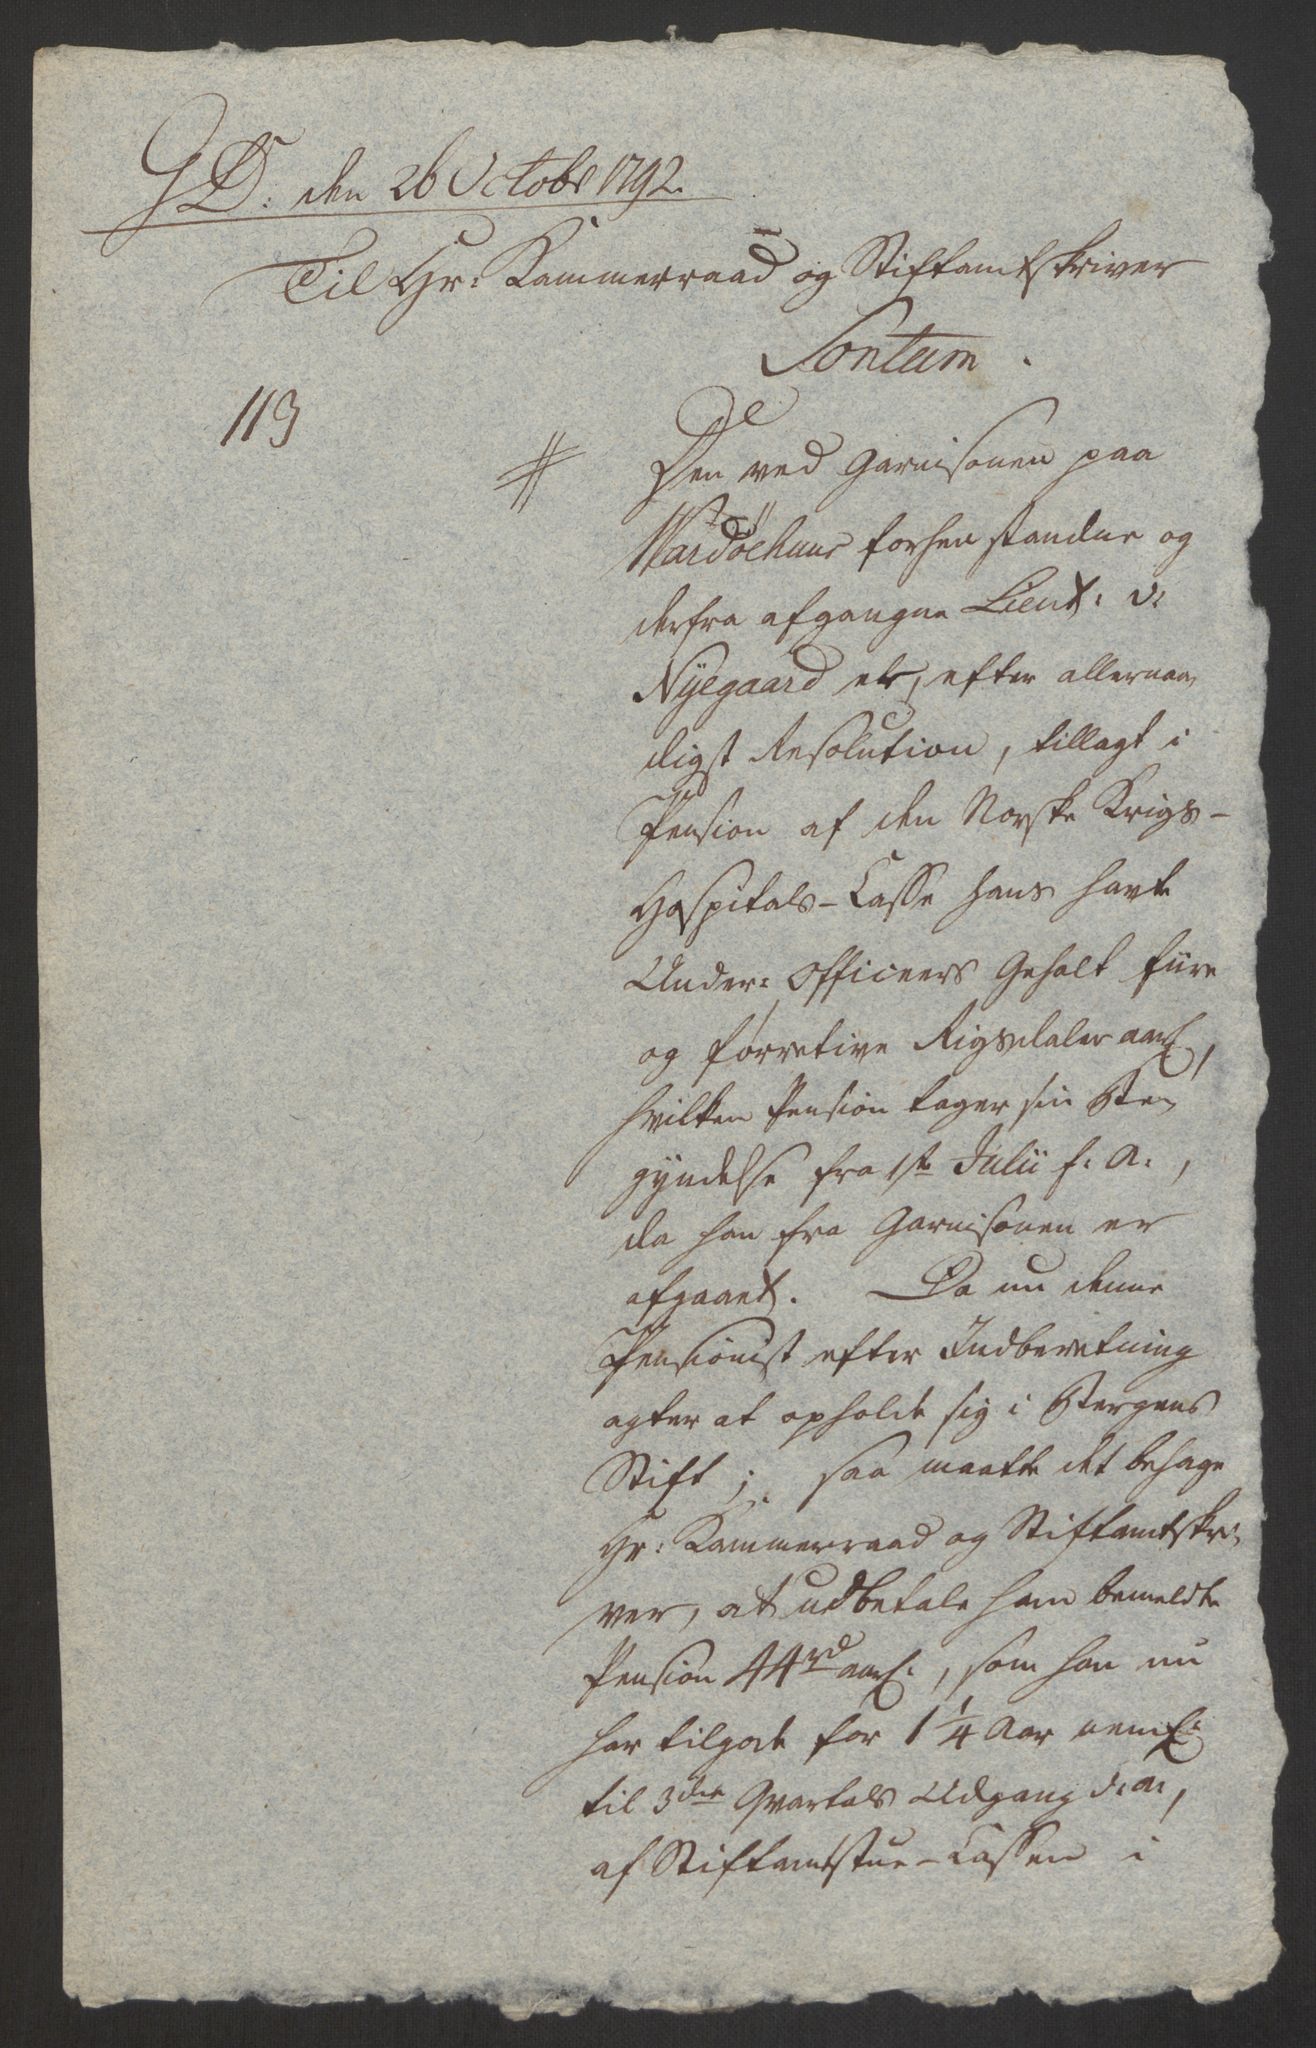 G D: den 26 Octobr 1792.
Til Hr: Kammerraad og Stiftamtskriver
Sontum.
113
Den ved Garnisonen paa
Wardöehuus forhen standne og
derfra afgangne Lieut: v:
Nyegaard er, efter allernaa,
digst Resolution, tillagt i
Pension af den Norske Krigs-
Hospitals-Casse hans havte
Under: Officeers Gehalt fiire
og førretive Rigsdaler aarl.,
hvilken Pension tager sin Be,
gyndelse fra 1ste Julii f: A:,
da han fra Garnisonen er
afgaaet. Da nu denne
Pensionist efter Indberetning
agter at opholde sig i Bergens
Stift; saa maatte det behage
Hr: Kammerraad og Stiftamtskri,
ver, at udbetale ham bemeldte
Pension 44 rd aarl:, som han nu
har tilgode for 1 1/4 Aar neml:
til 3die Qvartals Udgang d: a:,
af Stiftamtstue-Cassen i